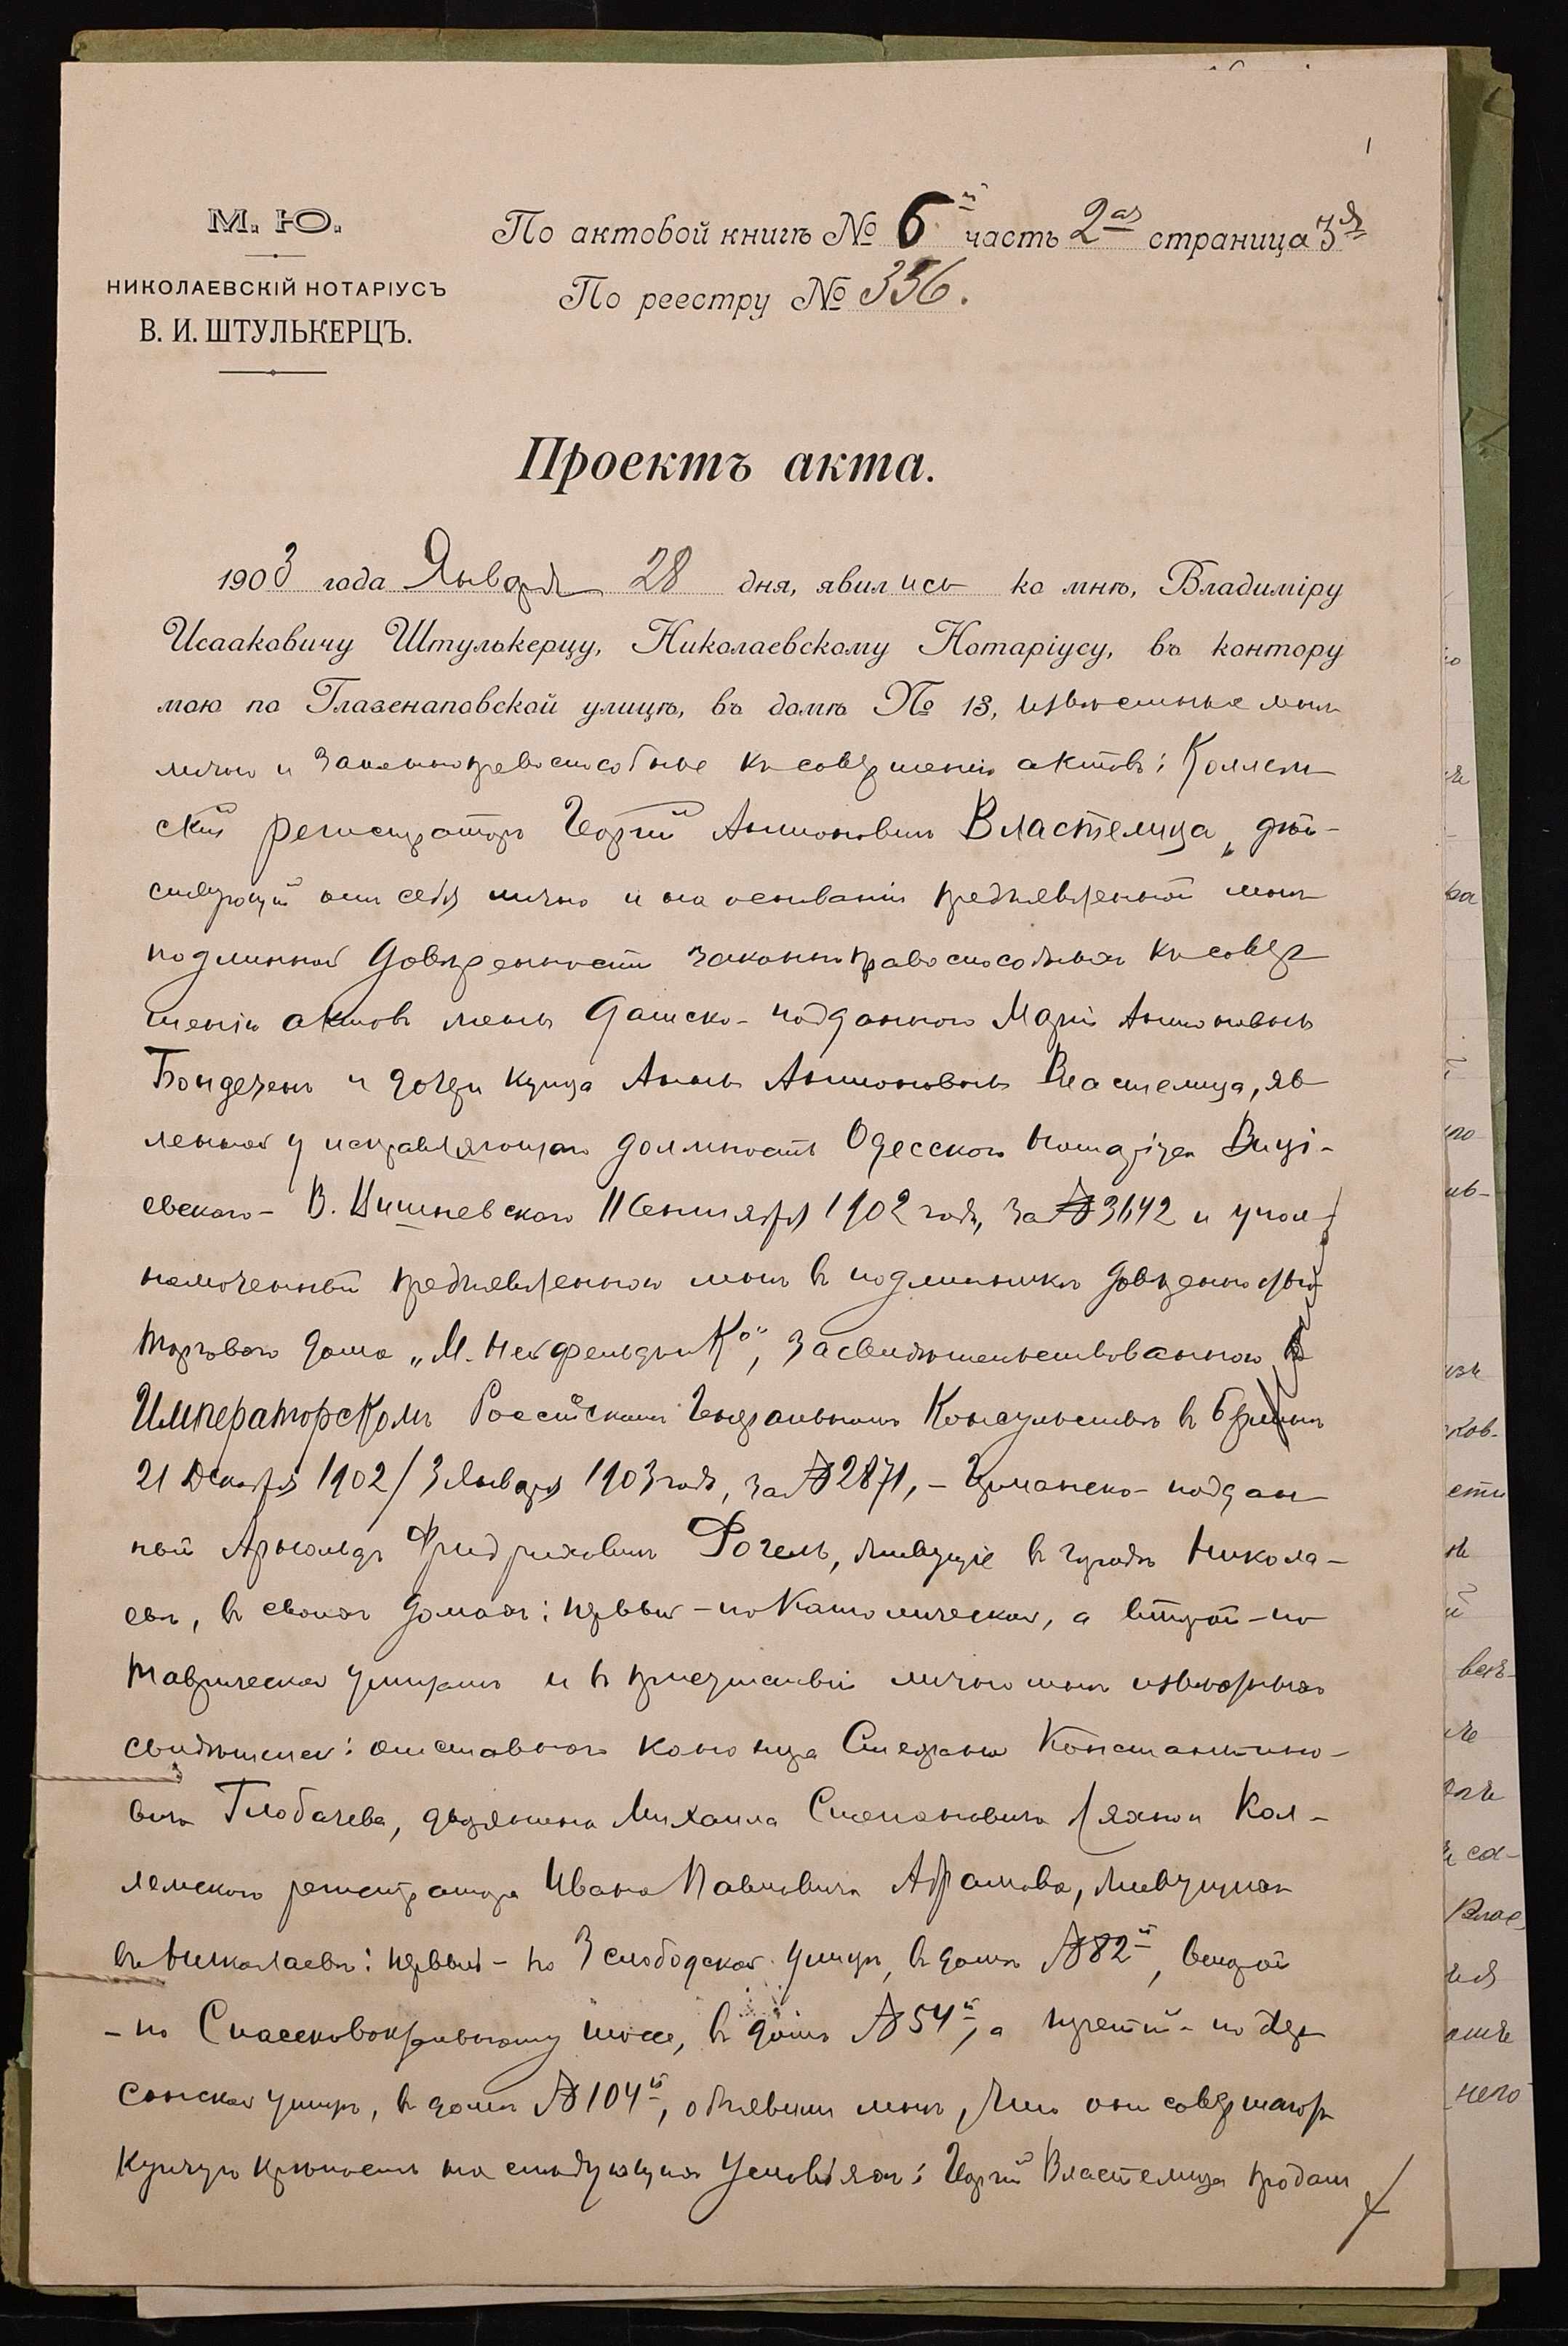 1
М. Ю.
НИКОЛАЕВСКІЙ НОТАРІУСЪ
В. И. ШТУЛЬКЕРЦЪ.
По актовой книгѣ № 6й часть 2ая страница 3я
По реестру № 356.
Проектъ акта.
1903 года Января 28 дня, явились ко мнѣ, Владиміру
Исааковичу Штулькерцу, Николаевскому Нотаріусу, въ контору
мою по Глазенаповской улицѣ, въ домѣ № 13, извѣстные мнѣ
лично и законноправоспособные къ совершенію актовъ: Коллеж-
скій регистраторъ Георгій Антоновичъ Властелица, дѣй-
ствующій отъ себя лично и на основаніи предъявленной мнѣ
подлинной довѣренности законноправоспособныхъ къ совер-
шенію актовъ жены Датско-подданного Маріи Антоновны
и дочери купца Анны Антоновны Властелица, яв-
ленной у исправляющаго должность Одесскаго Нотаріуса
евскаго - В. Вишневскаго 11 Сентября 1902 года, за № 3642 и упол-
номоченный предъявленною мнѣ въ подлинникѣ довѣренностью
Торговаго дома „М. Нейфельдъ и Ко", засвидѣтельствованною въ
Императорскомъ Россійскомъ Генеральномъ Консульствѣ въ
21 Декабря 1902/3 Января 1903 года, за № 2871, - Германско-поддан-
ный Арнольдъ Фридриховичъ живущіе въ городѣ Никола-
евѣ, въ своихъ домахъ: первый - по Католической, а второй - по
Таврической улицамъ и въ присутствіи лично мнѣ извѣстныхъ
свидѣтелей: отставного Стефана Константино-
вича Глобачева, дворянина Михаила Степановича Ляхно и Кол-
лежскаго регистратора Ивана Павловича Абрамова, живущихъ
въ Николаевѣ: первый - по 3 Слободской улицѣ, въ домѣ № 82й, второй
- по шоссе, въ домѣ № 54й, а третій - по Хер-
сонской улицѣ, въ домѣ № 104й, объявили мнѣ, что они совершаютъ
купчую крѣпость на слѣдующихъ условіяхъ: Георгій Властелица продалъ